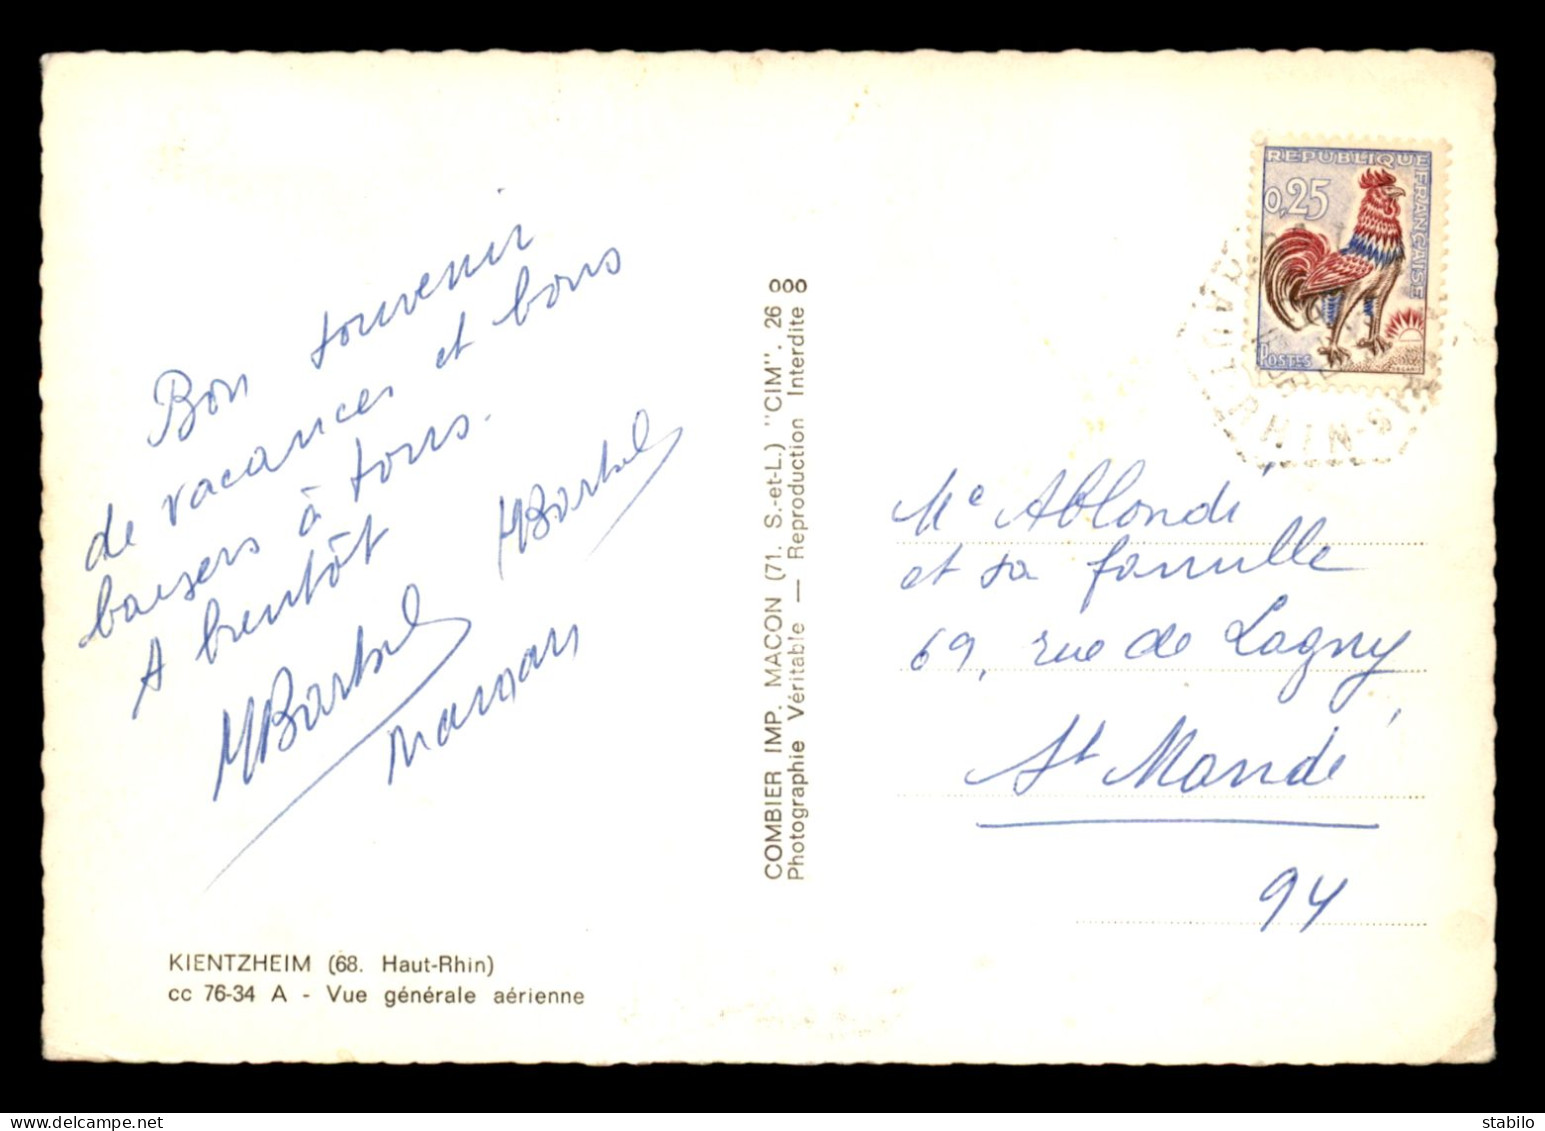 Bon souvenir
de vacances et bons
baisers à tous.
A bientôt
MBarbel
MBarbel
KIENTZHEIM (68. Haut-Rhin)
cc 76-34 A - Vue générale aérienne
COMBIER IMP. MACON (71. S.-et-L.) "CIM". 26 000
Photographie Véritable — Reproduction Interdite
REPUBLIQUE FRANÇAISE
0,25
POSTES
DECARIS
HAUT-RHIN
Me Ablondi
et sa famille
69, rue de Lagny
St Mandé
94
stabilo